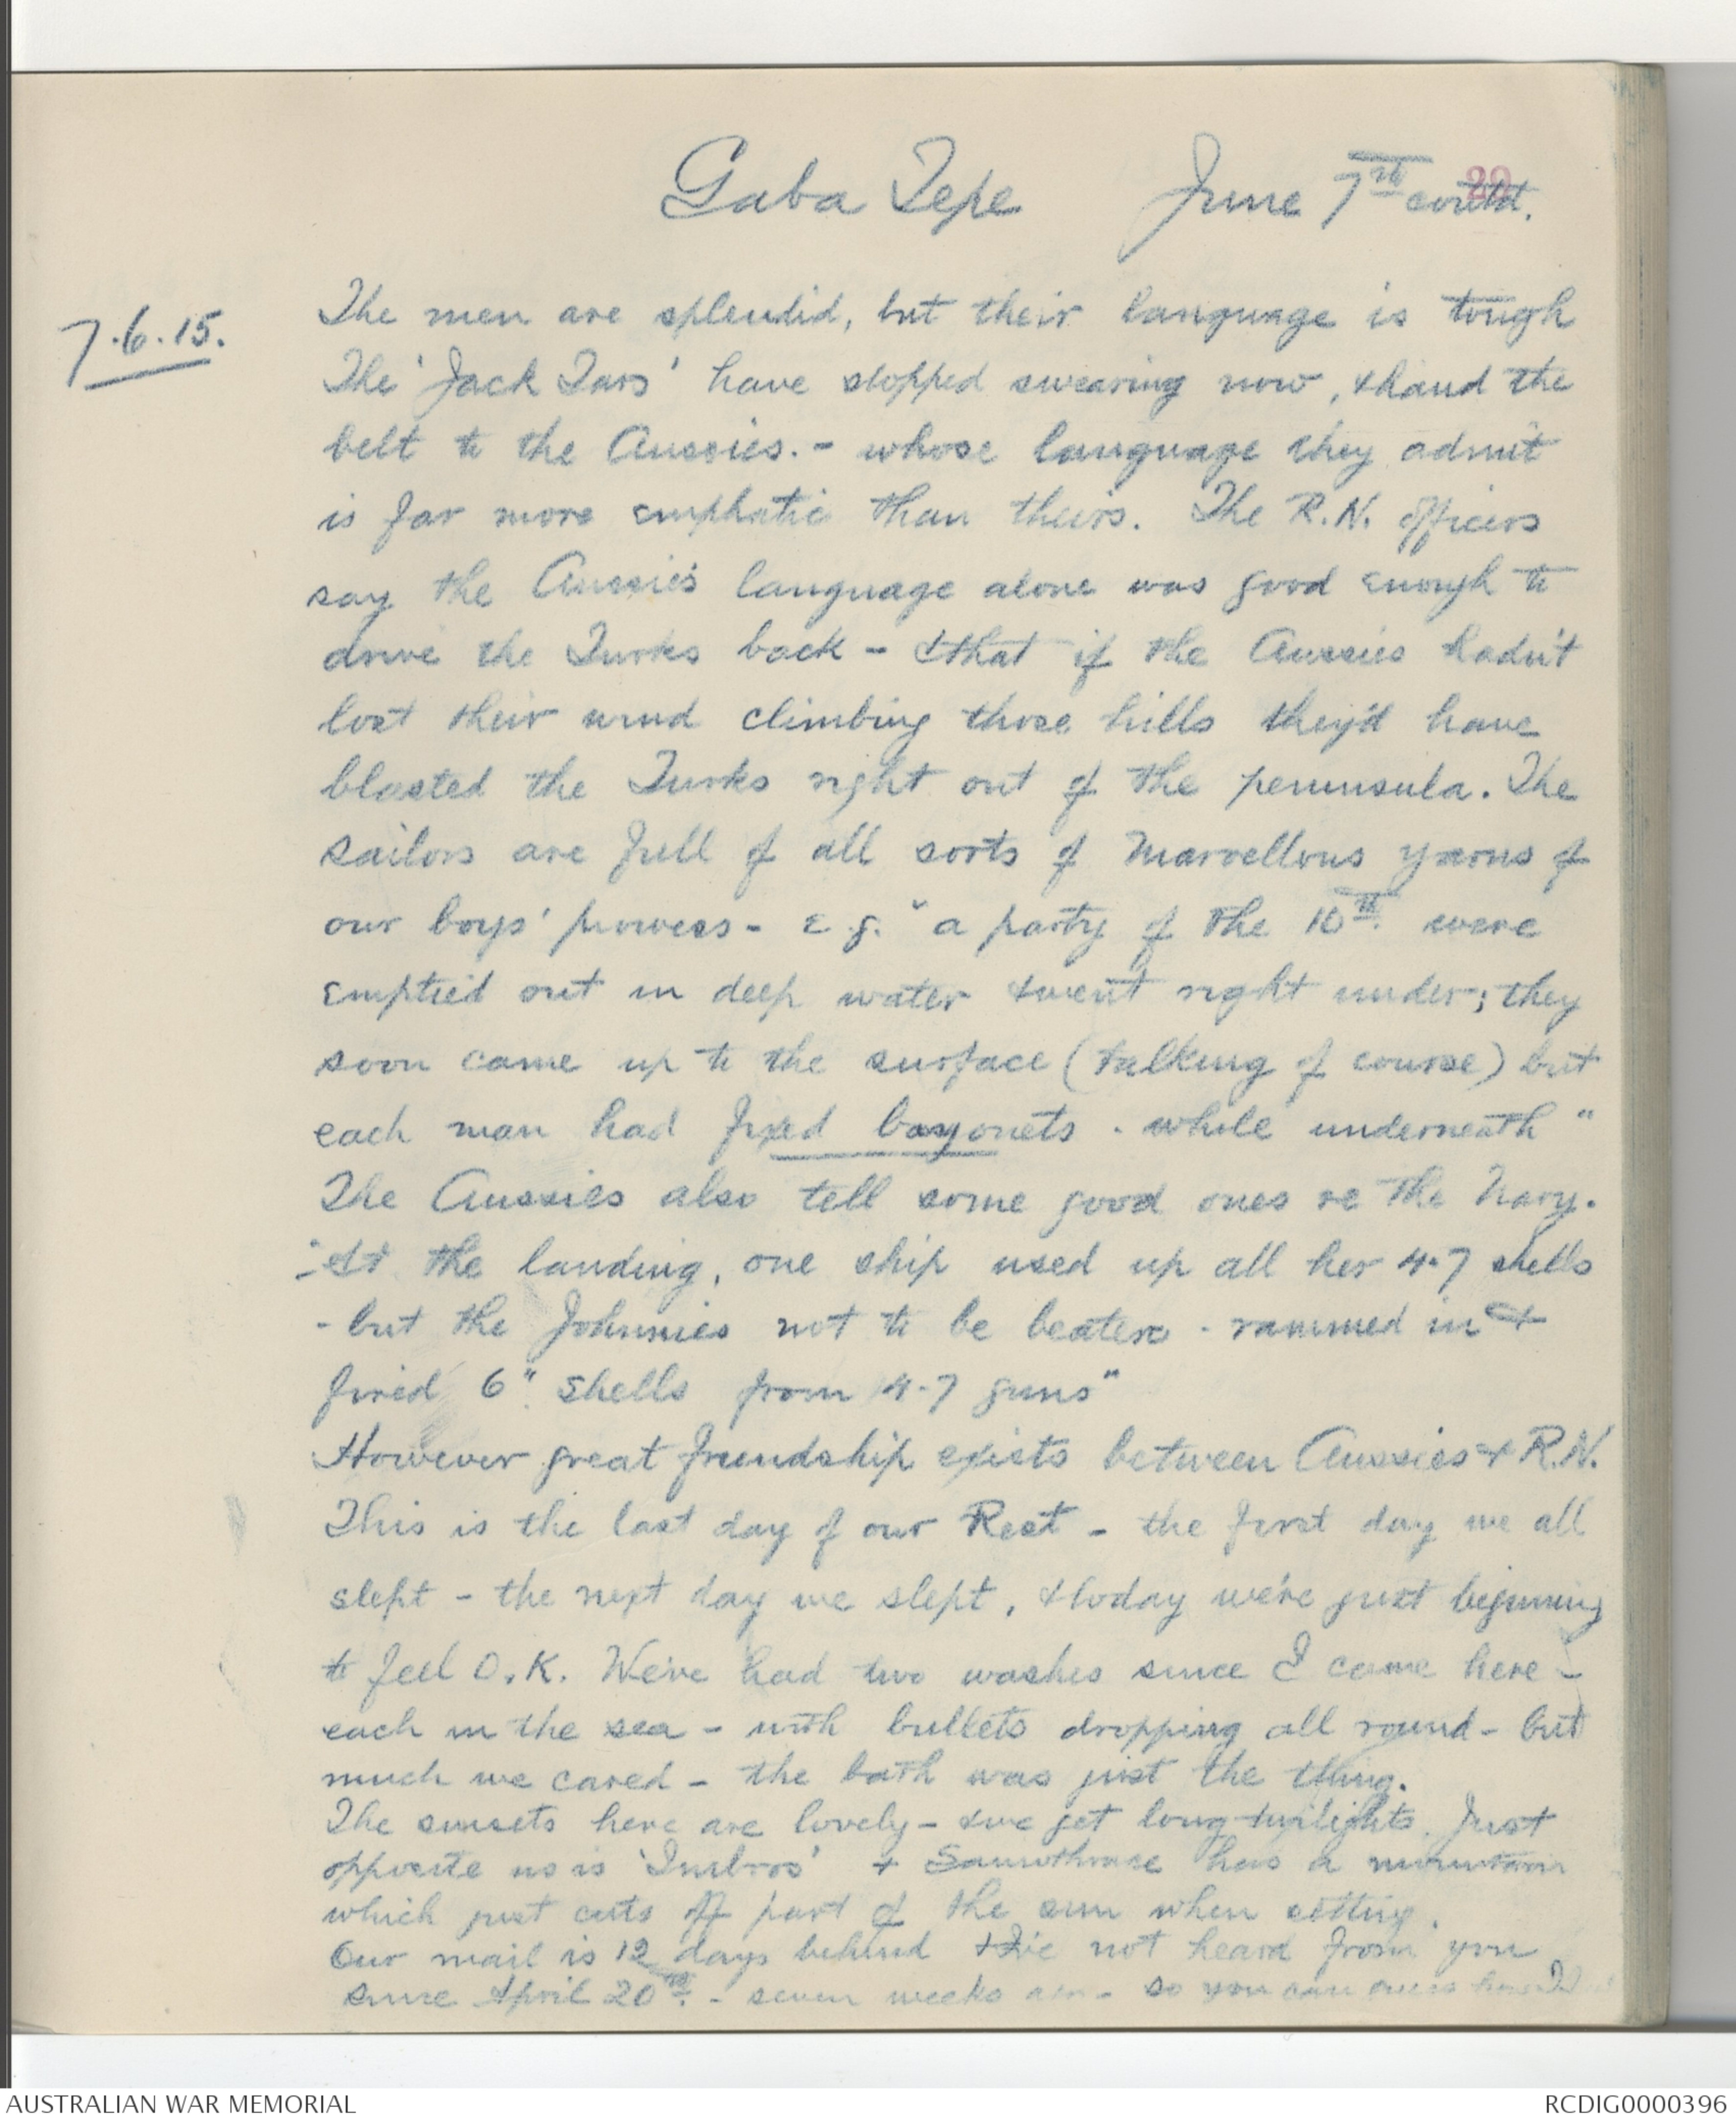 Gaba Tepe June 7th contd.
7.6.15.
The men are splendid, but their language is tough
The 'Jack Tars' have stopped swearing now, & hand the
belt to the Aussies. - whose language they admit
is far more emphatic than theirs. The R.N. officers
say the Aussies language alone was good enough to
drive the Turks back - & that if the Aussies hadn't
lost their wind climbing those hills they'd have
blasted the Turks right out of the peninsula. The
sailors are full of all sorts of marvellous yarns of
our boys' prowess - e.g. "a party of the 10th were
emptied out in deep water & went right under; they
soon came up to the surface (talking of course) but
each man had fixed bayonets - while underneath"
The Aussies also tell some good ones re the Navy.
- "At the landing, one ship used up all her 4.7 shells
- but the Johnnies not to be beaten - rammed in &
fired 6" shells from 4.7 guns"
However great friendship exists between Aussies & R.N.
This is the last day of our Rest - the first day we all
slept - the next day we slept, & today we're just beginning
to feel O.K. We've had two washes since I came here -
each in the sea - with bullets dropping all round - but
much we cared - the bath was just the thing.
The sunsets here are lovely - & we get long twilights. Just
opposite us is 'Imbros' & Samothrace has a mountain
which just cuts off part of the sun when setting.
Our mail is 12 days behind & I've not heard from you
since April 20th. - seven weeks ago - so you can guess how I
AUSTRALIAN WAR MEMORIAL
RCDIG0000396